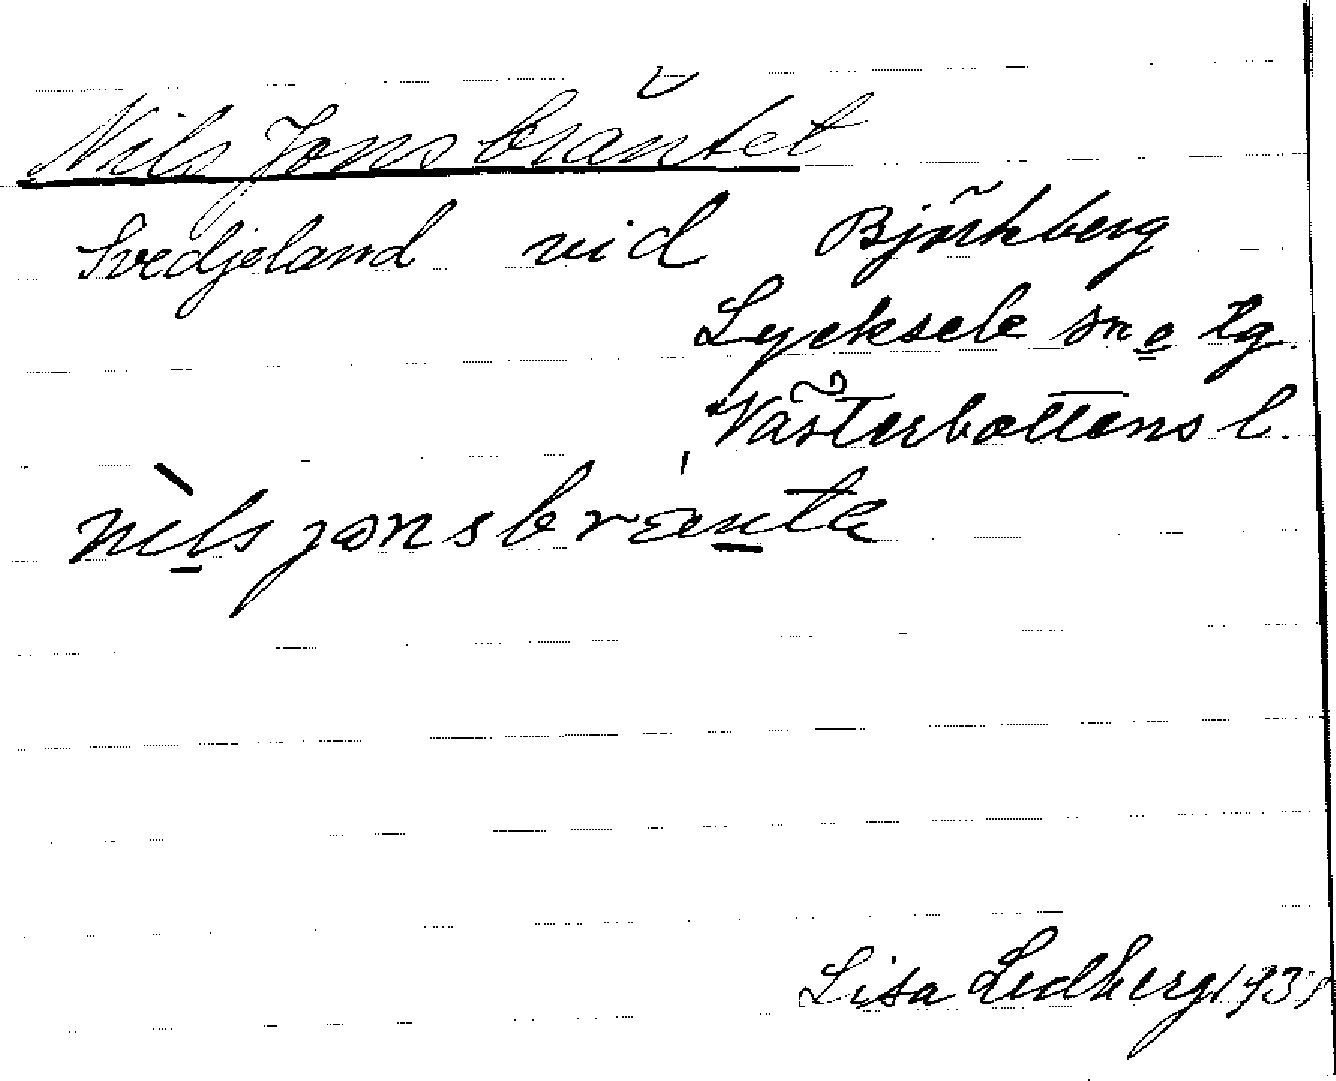 Nils Jonsbräntet
Svedjeland vid Björkberg
Lycksele sn o tg.
Västerbottens l.
nìlsjonsbrænta
Lisa Lidberg